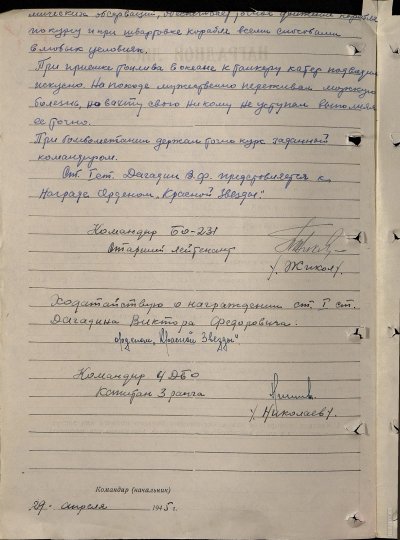 мических обсерваций, обеспечивает точное движение корабля
по курсу и при швартовке корабля всеми способами
в любых условиях.
При приемке топлива в океане к танкеру катер подводил
искусно. На походе мужественно переживал морскую
болезнь, но вахту свою никому не уступал выполняя
ее точно.
При бомбометании держал точно курс заданный
командиром.
Ст. I ст. Дагадин В.Ф. представляется к
Награде Орденом "Красной Звезды".
Командир БО-231
Старший лейтенант
/Жикол/.
Ходатайствую о награждении ст. I ст.
Дагадина Виктора Федоровича.
орденом "Красной Звезды"
Командир 4 ДБО
Капитан 3 ранга
/Николаев/.
Командир (начальник)
29. апреля 1945 г.